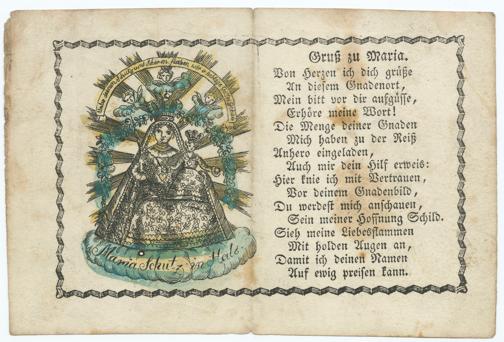 Maria Schutz in
Gruß zu Maria.
Von Herzen ich dich grüße
An diesem Gnadenort,
Mein bitt vor dir ausgüsse,
Erhöre meine Wort!
Die Menge deiner Gnaden
Mich haben zu der Reiß
Anhero eingeladen,
Auch mir dein Hilf erweis:
Hier knie ich mit Vertrauen,
Vor deinem Gnadenbild,
Du werdest mich anschauen,
Sein meiner Hoffnung Schild.
Sieh meine Liebesflammen
Mit holden Augen an,
Damit ich deinen Namen
Auf ewig preisen kann.